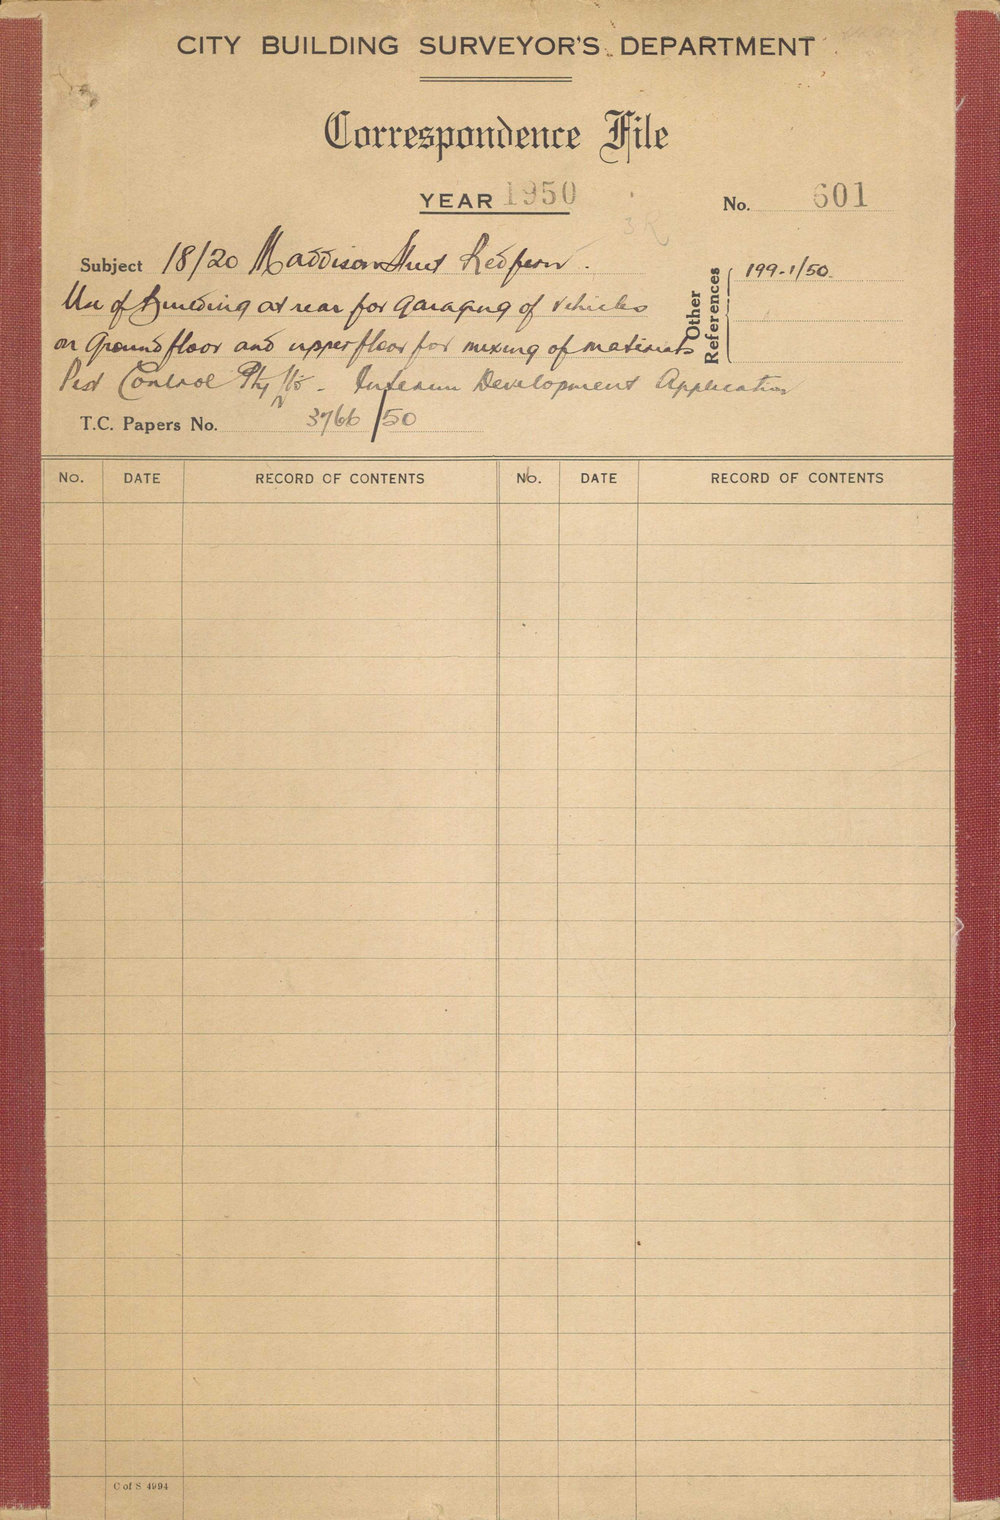 CITY BUILDING SURVEYOR'S DEPARTMENT
Correspondence File
YEAR 1950
No. 601
3R
Subject 18/20 Maddison Street Redfern.
Use of Building at rear for garaging of vehicles
on Ground floor and upper floor for mixing of materials
Pest Control Pty Ltd - Interim Development Application
Other References 199-1/50
T.C. Papers No. 3766/50
No. DATE RECORD OF CONTENTS No. DATE RECORD OF CONTENTS
C of S 4994